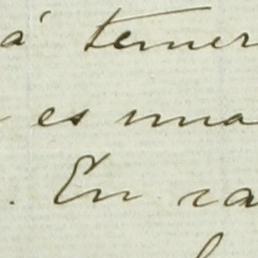 á temer
es una
. En ra